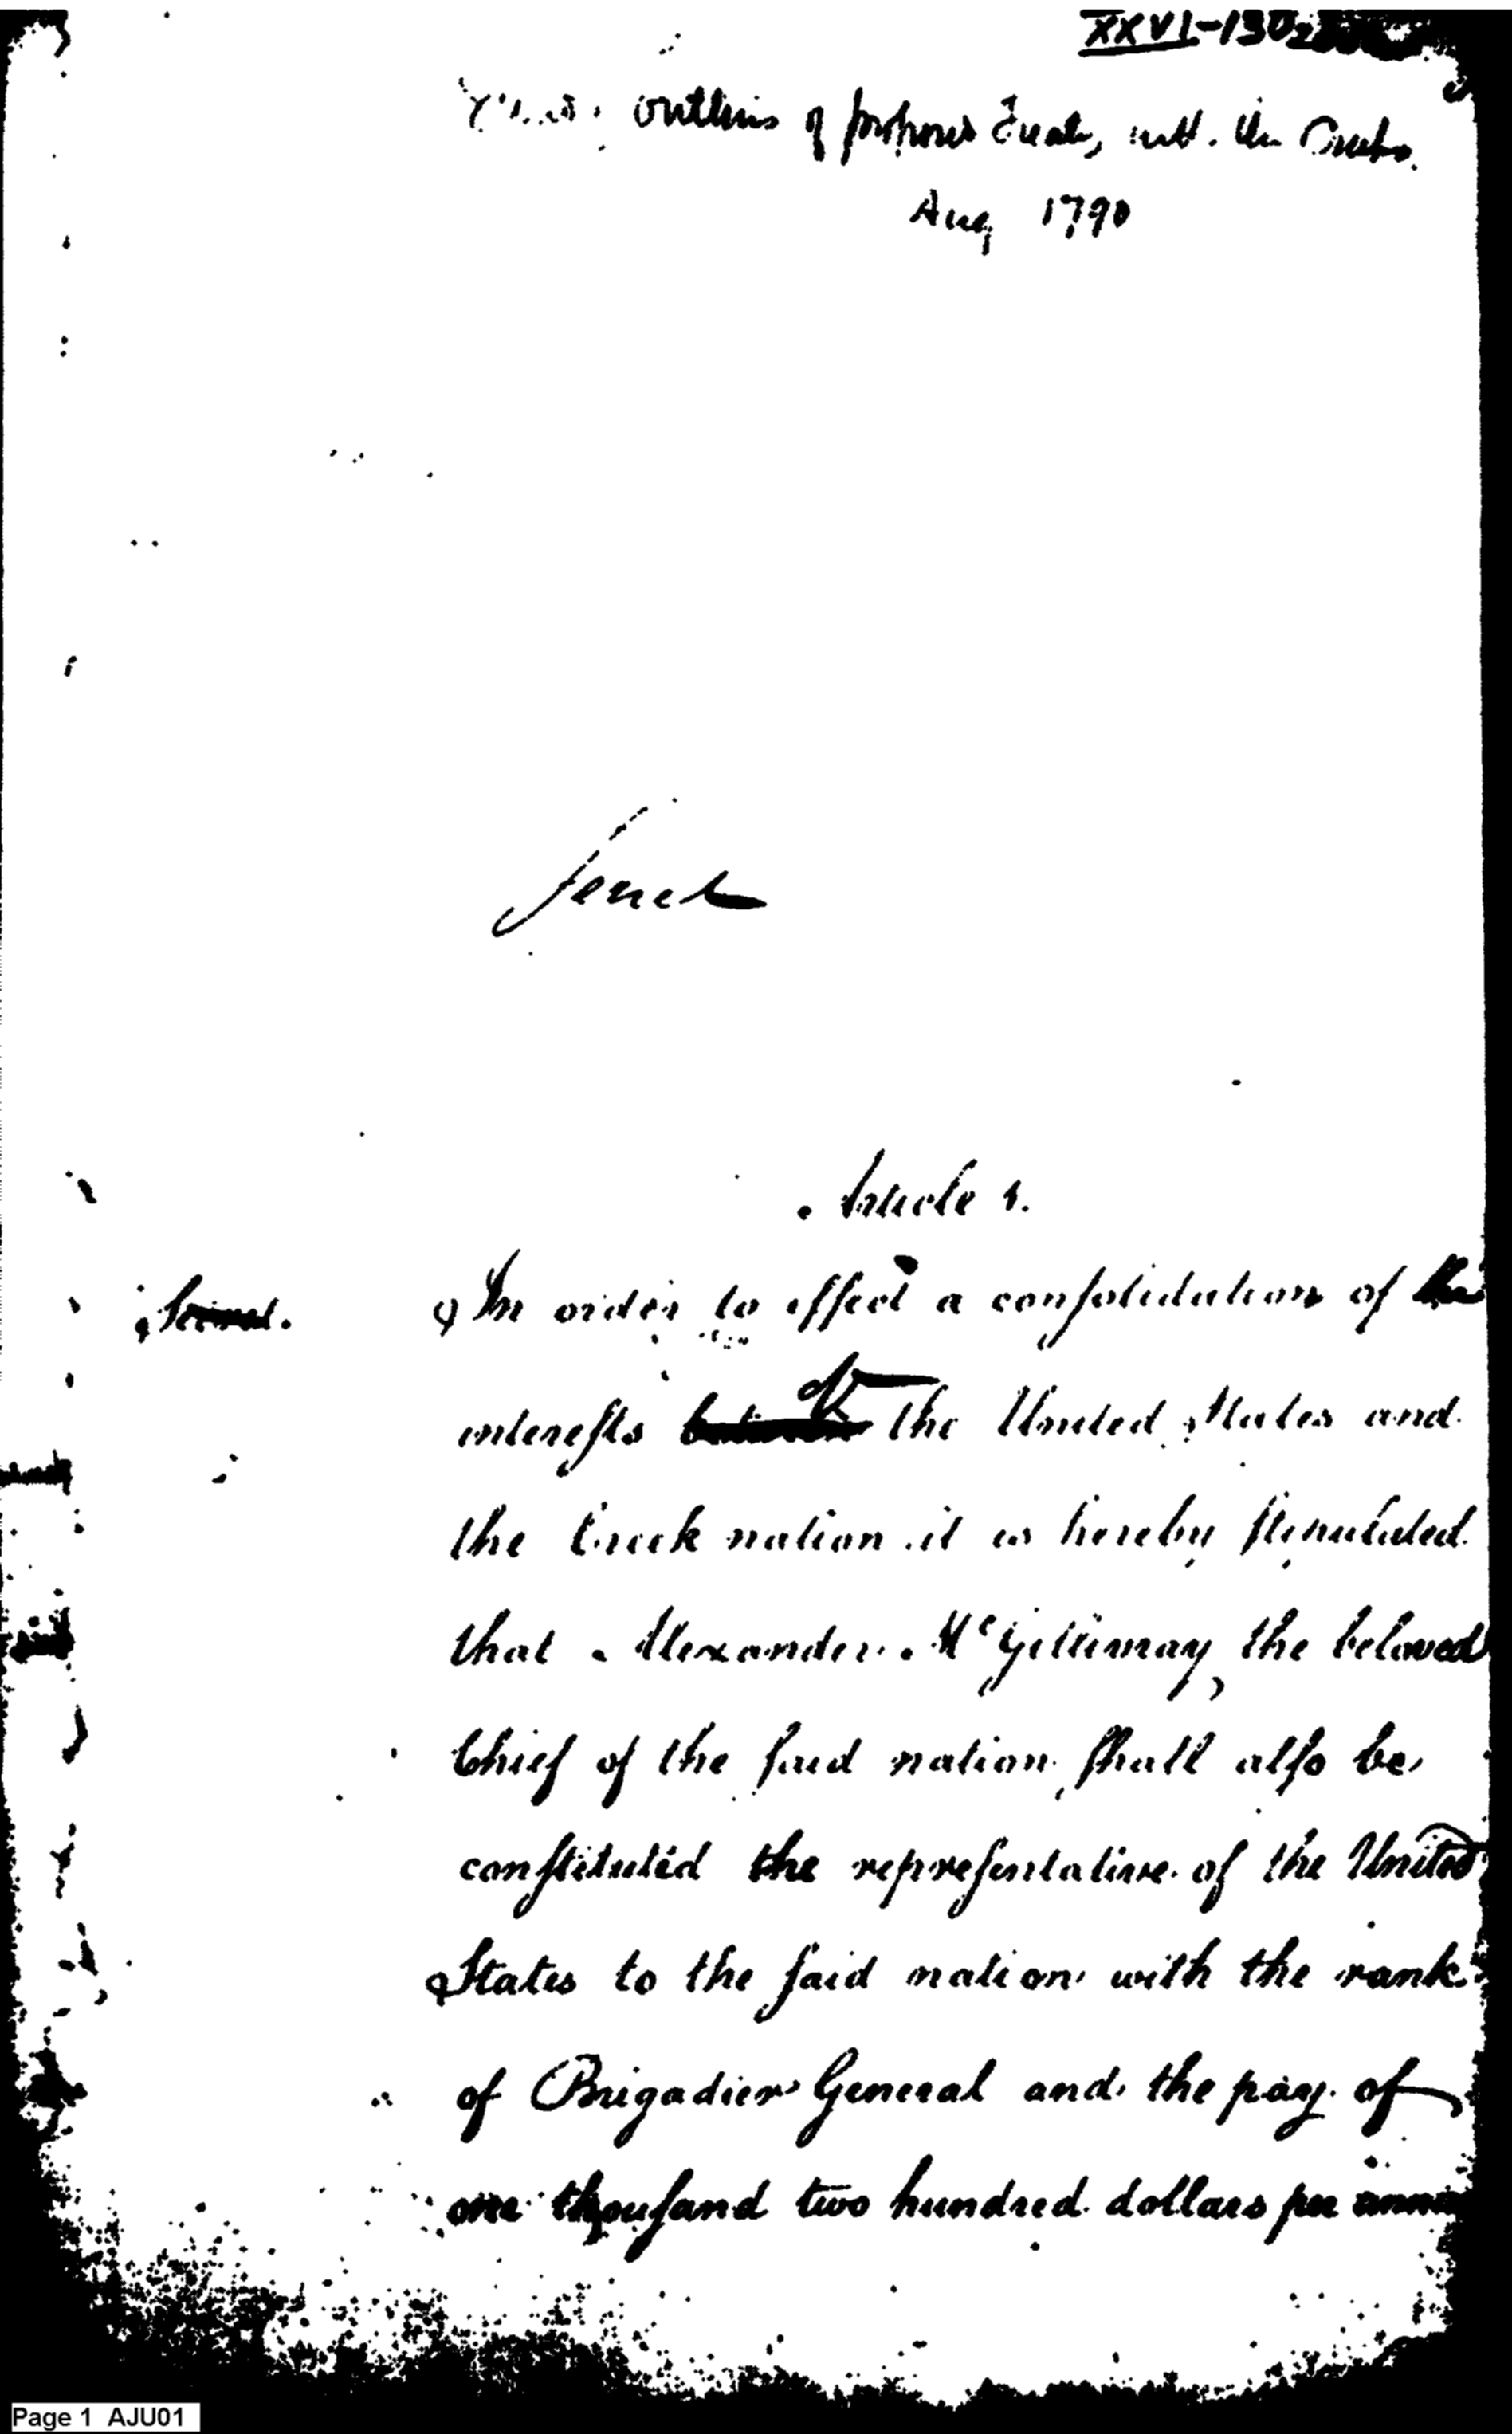 XXVI-130
outlines of proposed Treaty with the Creeks
Aug 1790
Secret
Article 1.
Secret.
In order to effect a conſolidation of the
intereſts between of the United States and
the Creek nation it is hereby ſtipulated
that Alexander McGillivray, the beloved
Chief of the ſaid nation ſhall alſo be
conſtituted the repreſentative of the United
States to the ſaid nation with the rank
of Brigadier General and the pay of
one thouſand two hundred dollars per
Page 1 AJU01